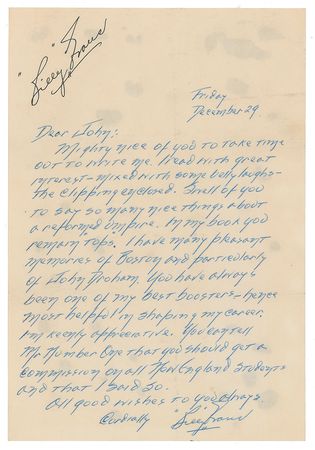 "Billy" Evans
Friday
December 29.
Dear John:
Mighty nice of you to take time
out to write me. Read with great
interest - mixed with some belly laughs -
the clipping enclosed. Swell of you
to say so many nice things about
a reformed umpire. In my book you
remain "tops". I have many pleasant
memories of Boston and particularly
of John Droham. You have always
been one of my best boosters - hence
most helpful in shaping my career.
I'm keenly appreciative. You can tell
Mr Number One that you should get a
commission on all New England students
and that I said so.
All good wishes to you always.
Cordially "Billy" Evans